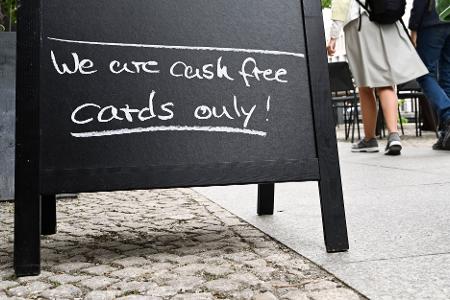 We are cash free
cards only!